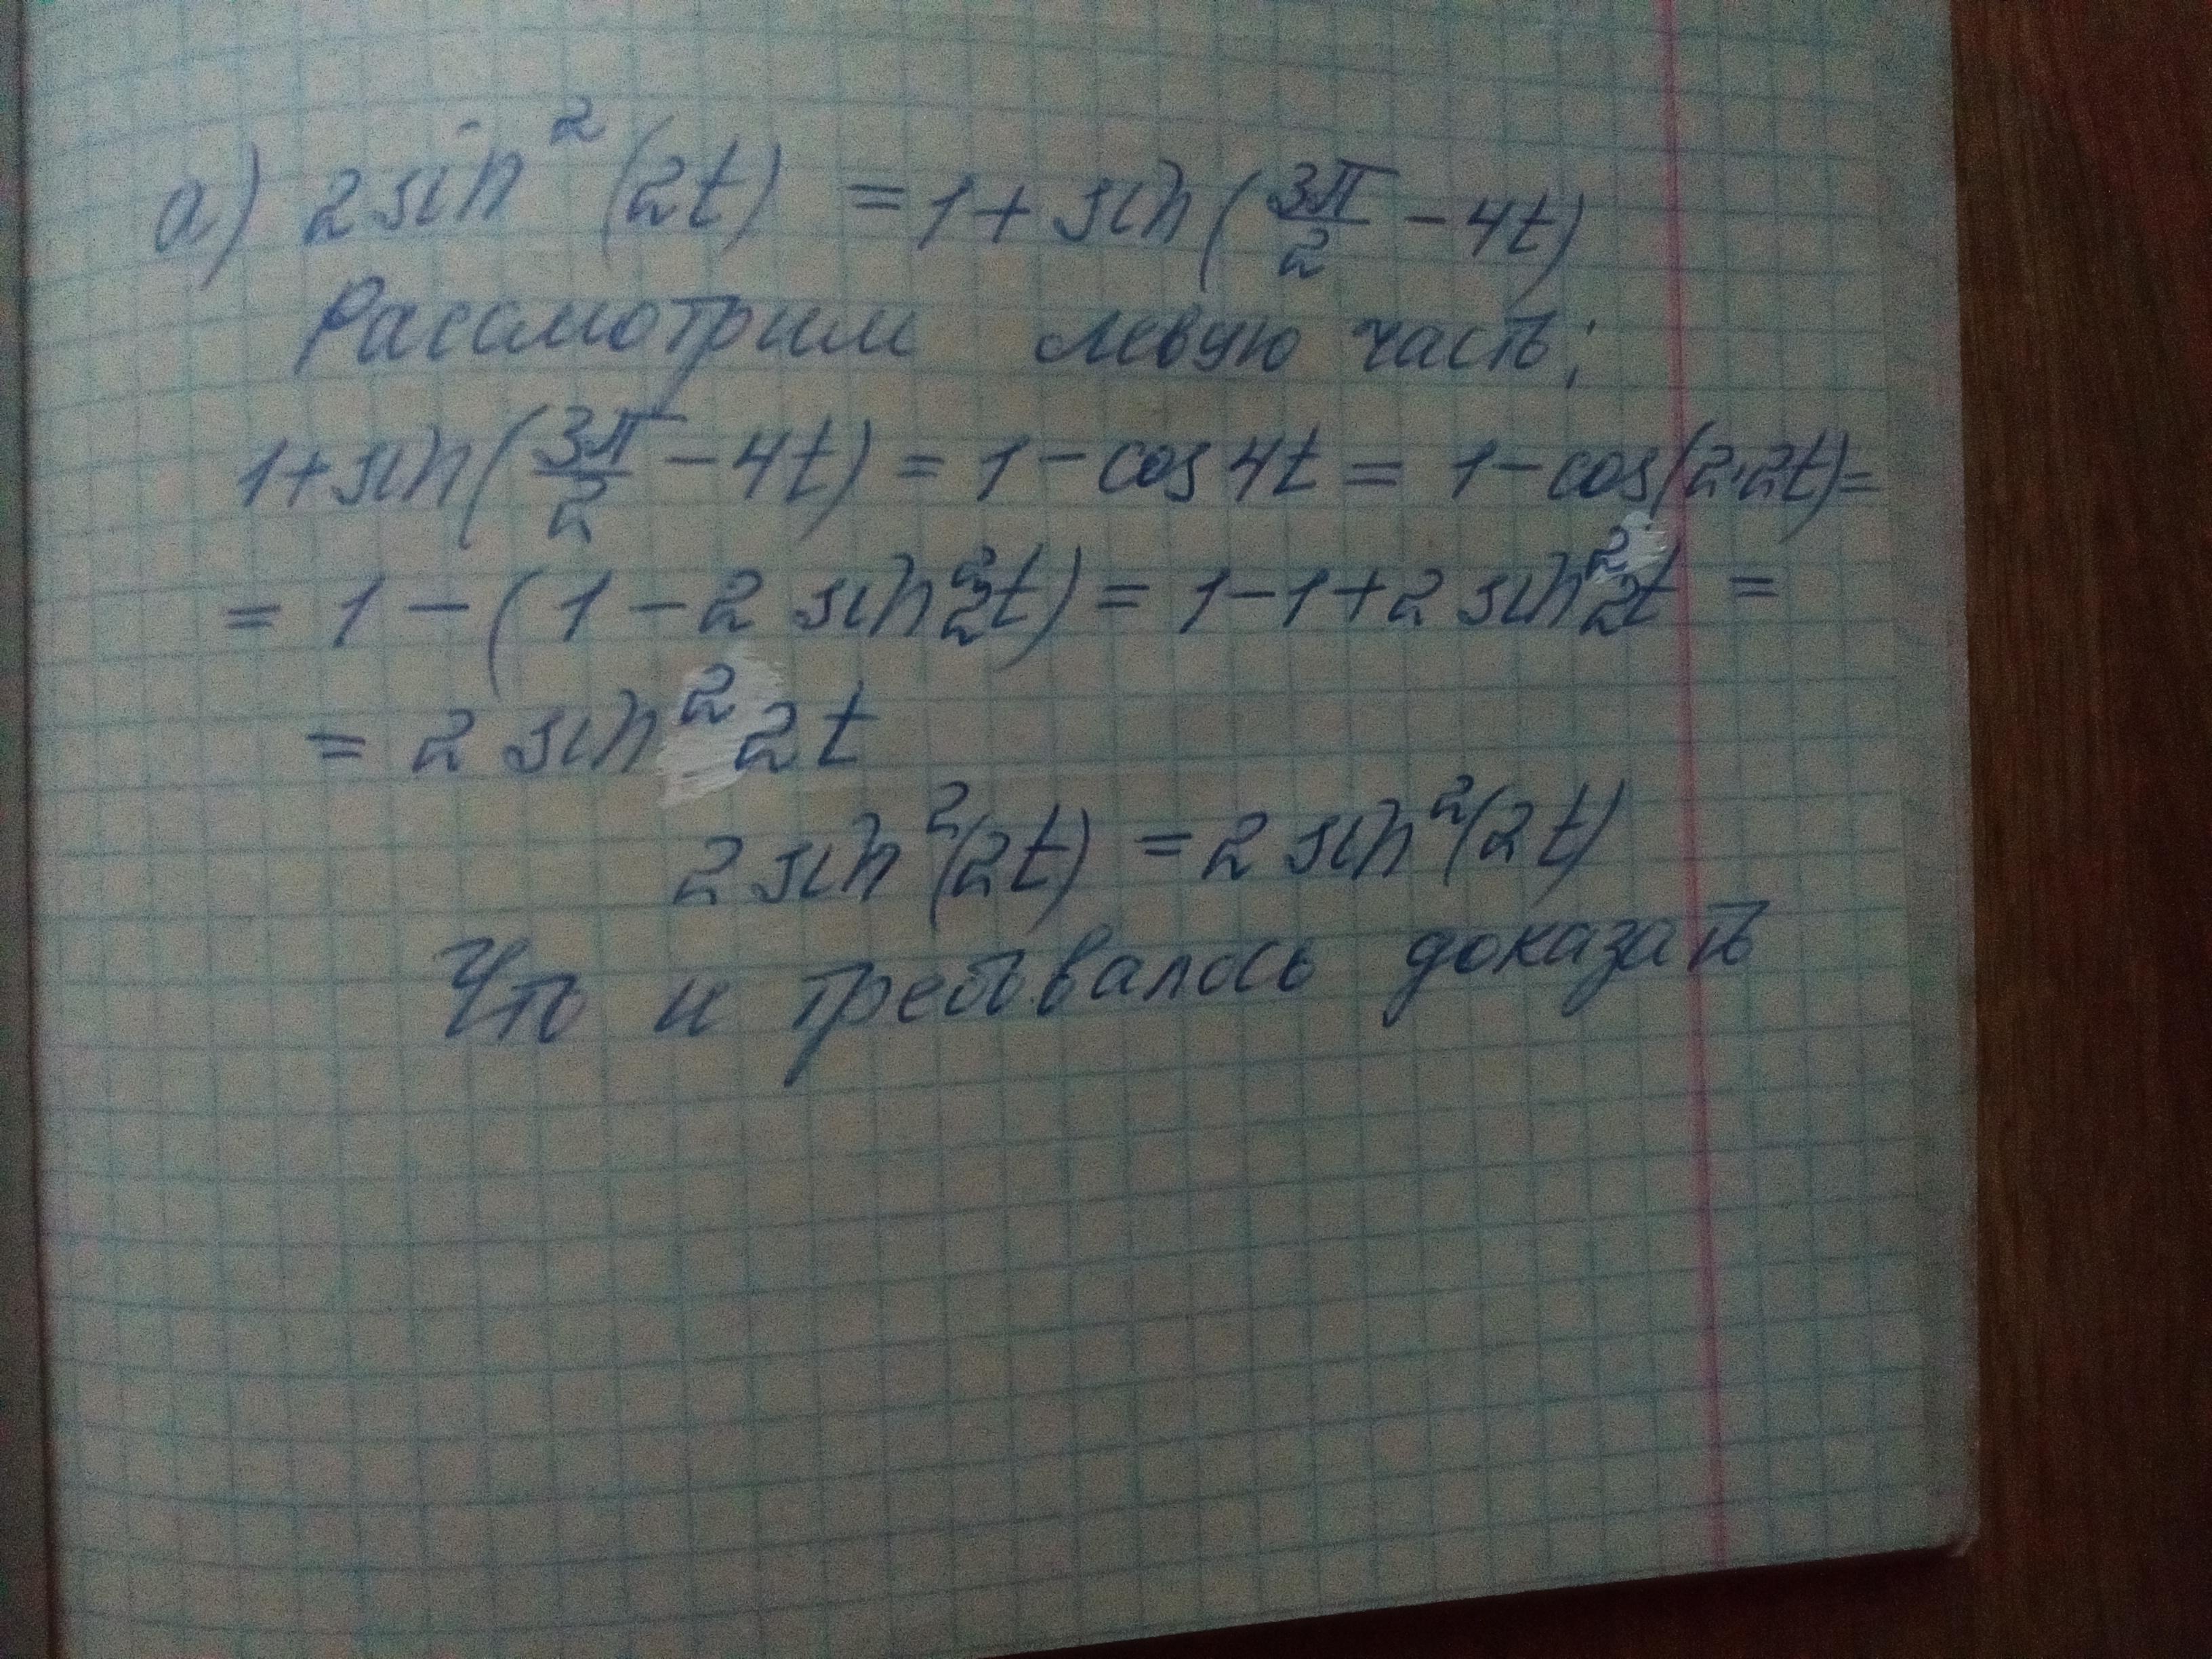 а) 2 sin² (2t) = 1 + sin (3π/2 − 4t)
Рассмотрим левую часть:
1 + sin (3π/2 − 4t) = 1 − cos 4t = 1 − cos (2·2t) =
= 1 − (1 − 2 sin² 2t) = 1 − 1 + 2 sin² 2t =
= 2 sin² 2t
2 sin² (2t) = 2 sin² (2t)
Что и требовалось доказать